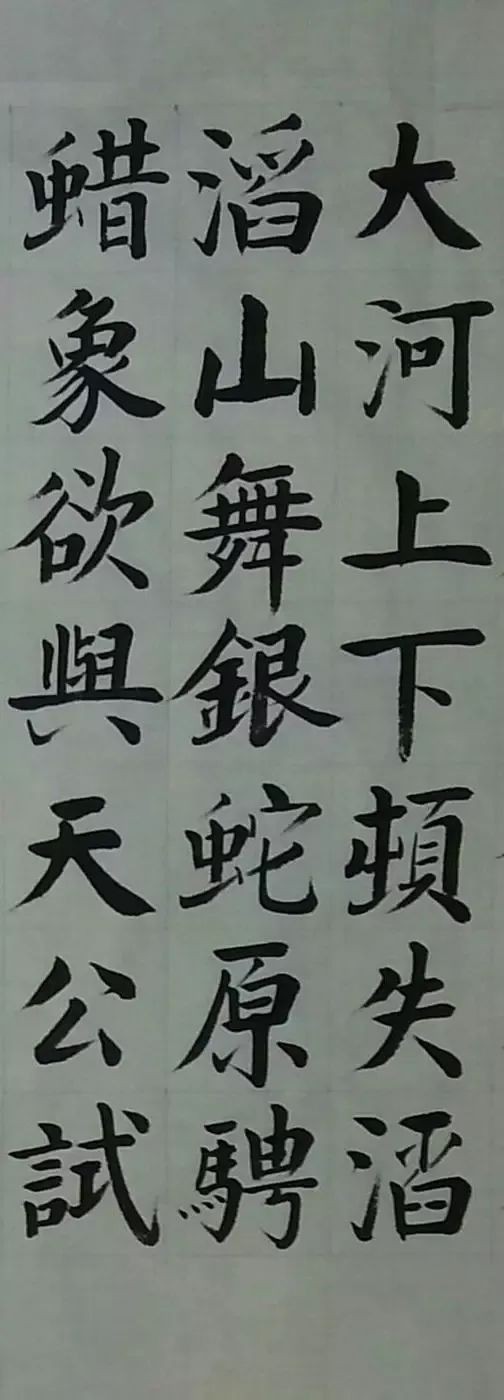 大河上下頓失滔
滔山舞銀蛇原騁
蜡象欲與天公試